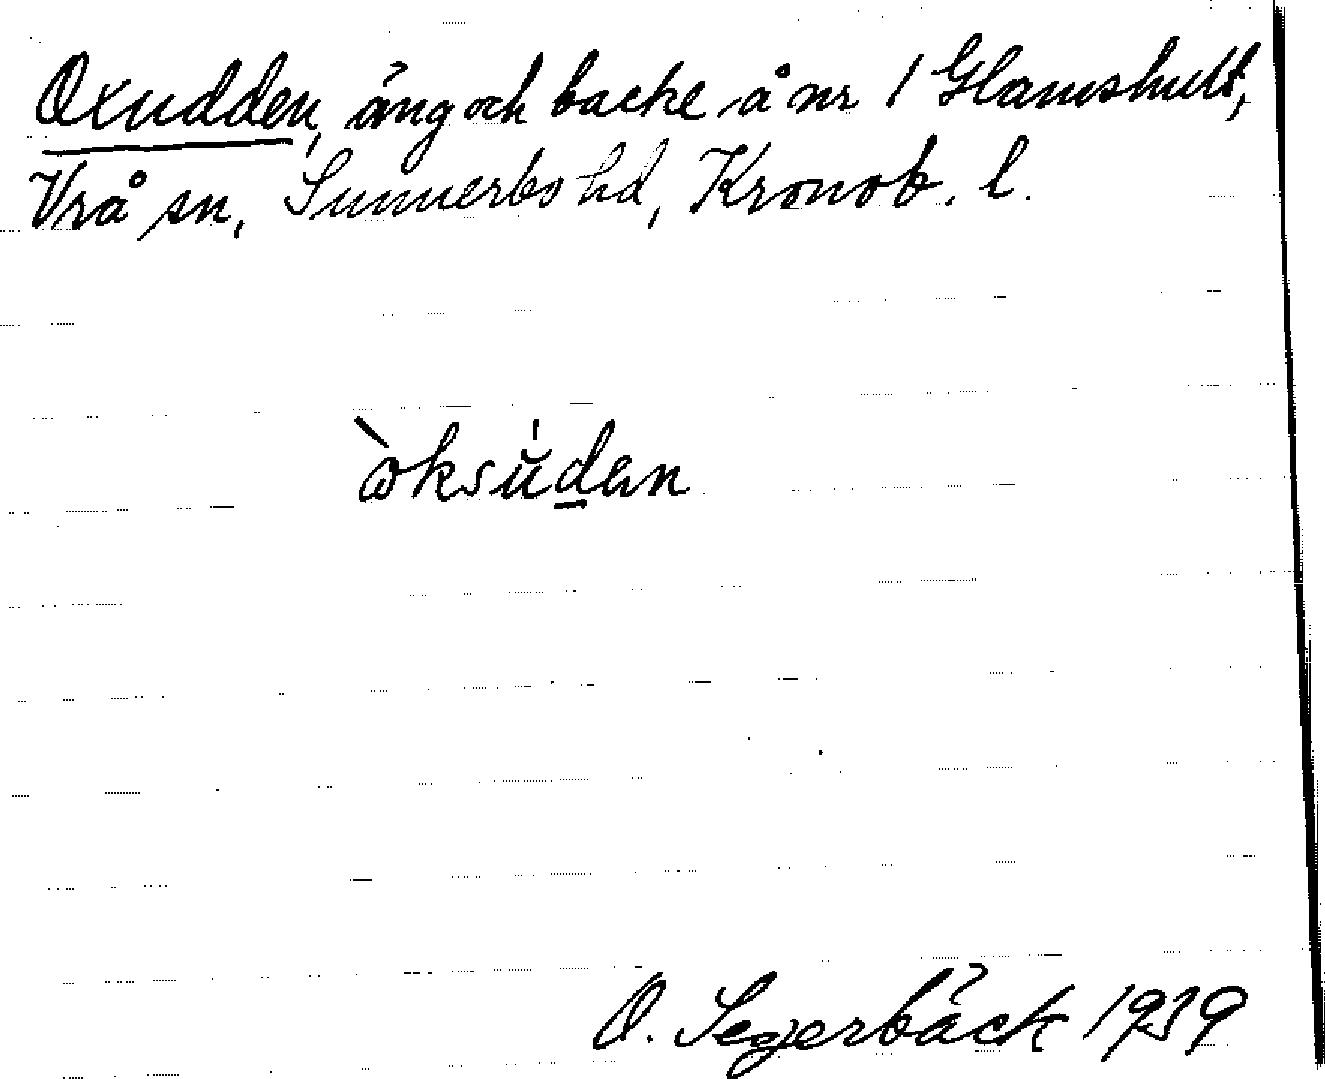 Oxudden, äng och backe å nr 1 Glamshult,
Vrå sn, Sunnerbo hd, Kronob. l.
òksu̍d̲ən
O. Segerbäck 1939